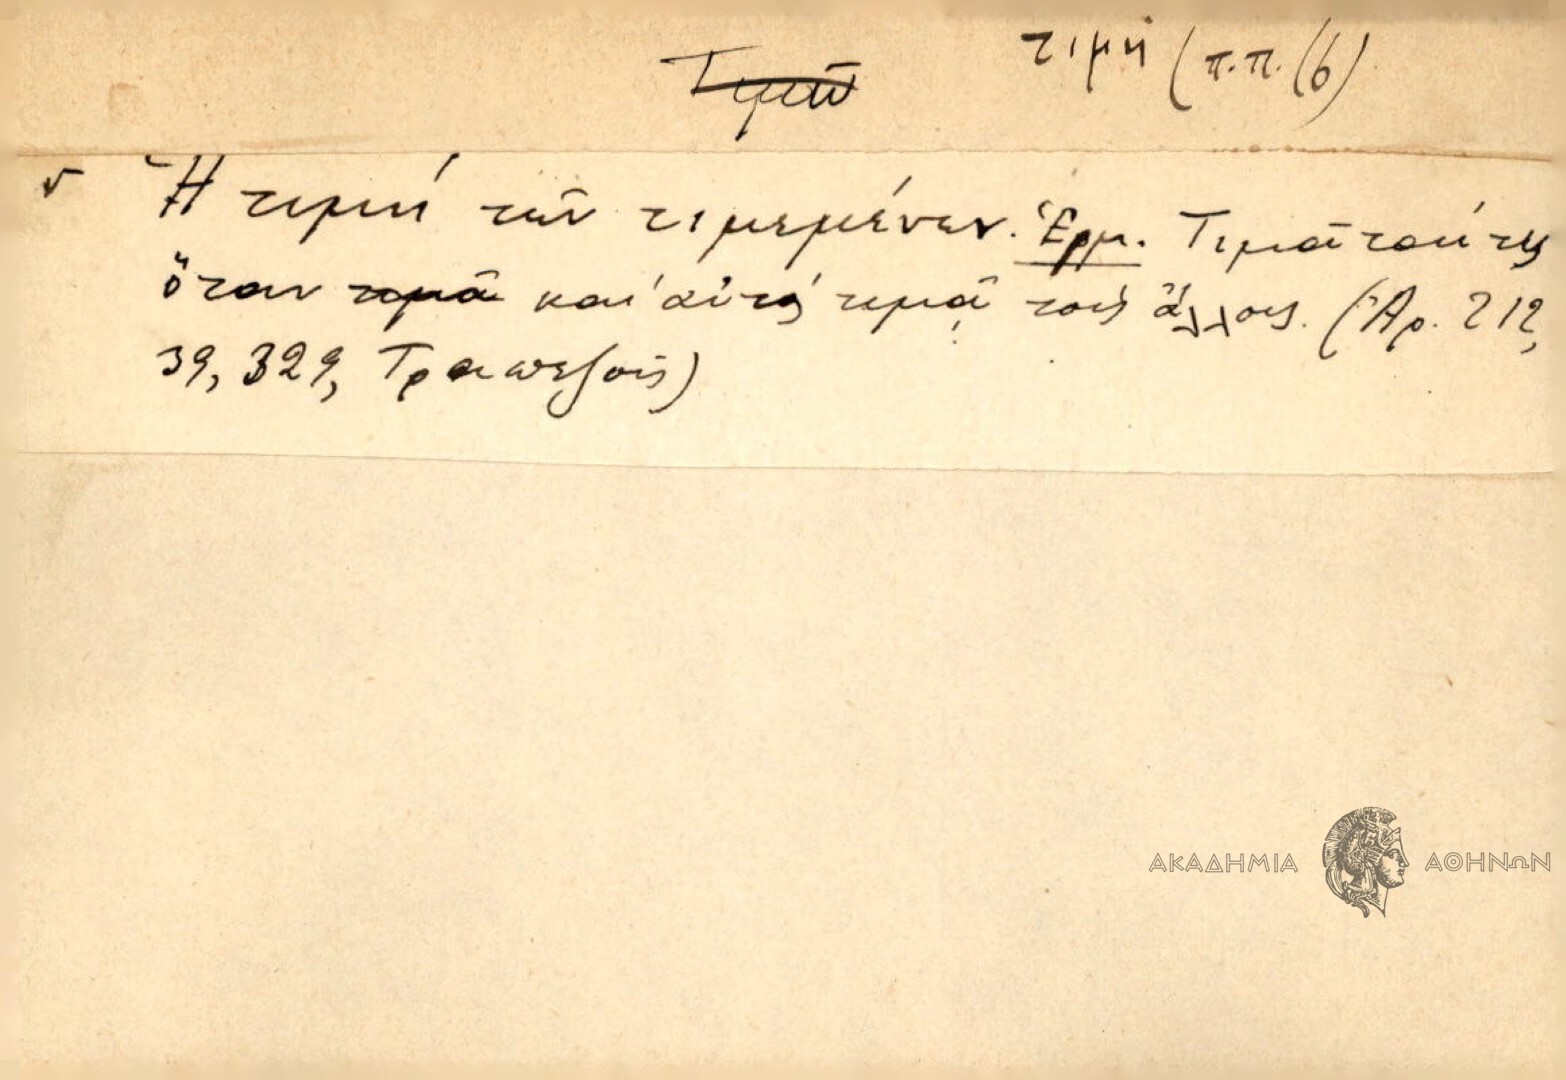 Τιμῶ τιμή (π.π. (6)
Ἡ τιμή τῶν τιμεμένων. Ἑρμ. Τιμᾶται ὅτις
ὅταν τιμᾶ καὶ αὐτός τιμᾷ τούς ἄλλους. (Ἀρ. 212,
39, 329, Τραπεζούς)
ΑΚΑΔΗΜΙΑ ΑΘΗΝΩΝ